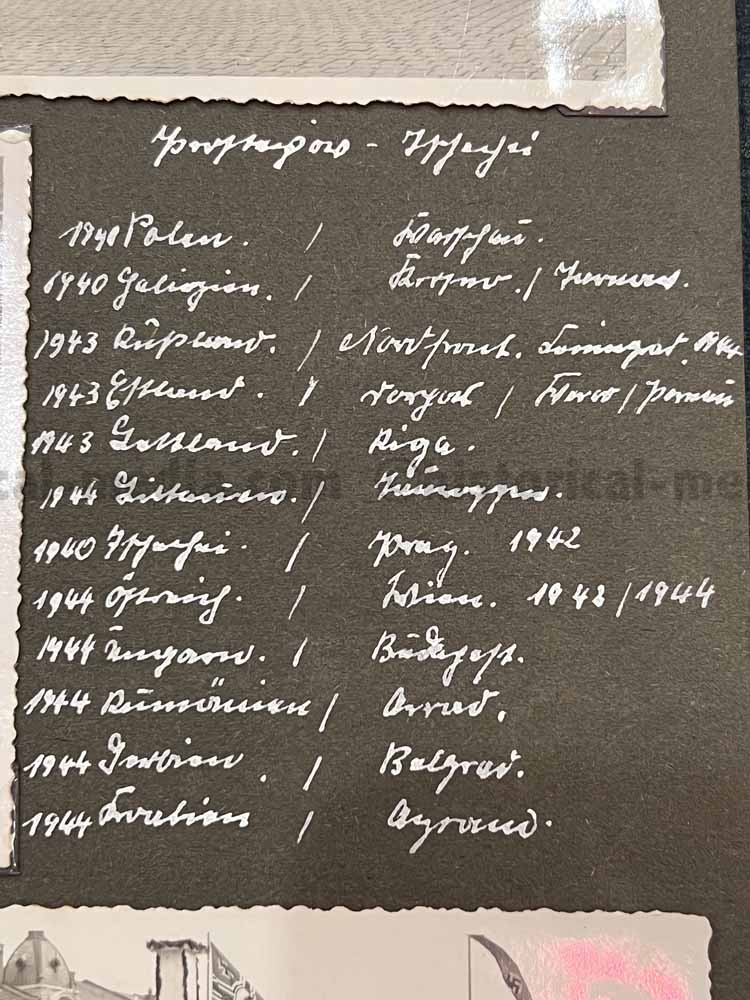 Prosteyow - Tschechei
1940 Polen. / Warschau.
1940 Galizien. / Krosno. / Tarnow.
1943 Rußland. / Nordfront. Leningrad. 1944
1943 Estland. / Dorpat / Werro / Pernau
1943 Lettland. / Riga.
1944 Littauen. / Tauroggen.
1940 Tschechei. / Prag. 1942
1944 Östreich. / Wien. 1942 / 1944
1944 Ungarn. / Budapest.
1944 Rumänien / Arrad.
1944 Serbien. / Belgrad.
1944 Kroatien / Agram.